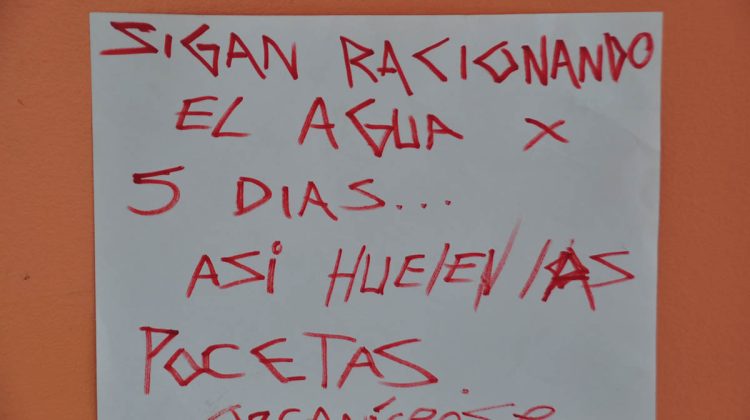 SIGAN RACIONANDO
EL AGUA X
5 DIAS...
ASI HUELEN LAS
POCETAS.